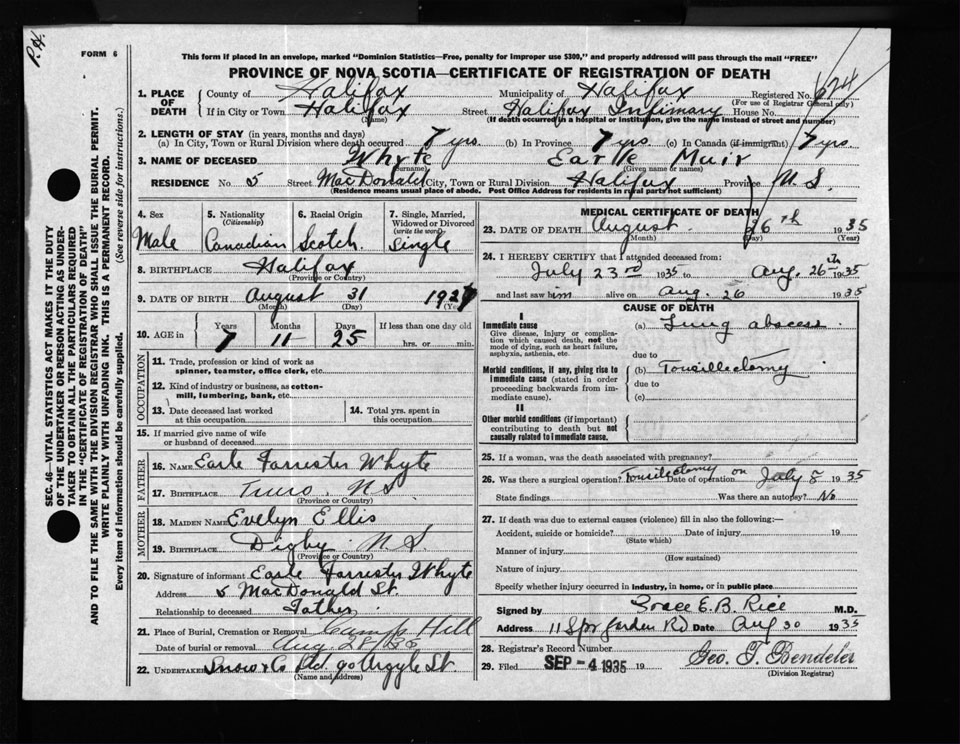 P.H.
FORM 6
This form if placed in an envelope, marked "Dominion Statistics—Free, penalty for improper use $300," and properly addressed will pass through the mail "FREE"
PROVINCE OF NOVA SCOTIA—CERTIFICATE OF REGISTRATION OF DEATH
1. PLACE OF DEATH County of Halifax Municipality of Halifax Registered No. 674
(For use of Registrar General only)
If in City or Town Halifax Street Halifax Infirmary House No.
(Name) (If death occurred in a hospital or institution, give the name instead of street and number)
2. LENGTH OF STAY (in years, months and days)
(a) In City, Town or Rural Division where death occurred 7 yrs. (b) In Province 7 yrs. (c) In Canada (if immigrant) 7 yrs
3. NAME OF DECEASED Whyte Earle Muir
(Surname) (Given name or names)
RESIDENCE No 5 Street MacDonald City, Town or Rural Division Halifax Province N.S.
(Residence means usual place of abode. Post Office Address for residents in rural parts not sufficient)
4. Sex 5. Nationality 6. Racial Origin 7. Single, Married, Widowed or Divorced
(Citizenship) (write the word)
Male Canadian Scotch Single
8. BIRTHPLACE Halifax
(Province or Country)
9. DATE OF BIRTH August 31 1927
(Month) (Day) (Year)
10. AGE in Years Months Days If less than one day old
7 11 25 hrs. or min.
OCCUPATION
11. Trade, profession or kind of work as spinner, teamster, office clerk, etc.
12. Kind of industry or business, as cotton-mill, lumbering, bank, etc.
13. Date deceased last worked at this occupation
14. Total yrs. spent in this occupation
15. If married give name of wife or husband of deceased
FATHER
16. NAME Earle Forrester Whyte
17. BIRTHPLACE Truro, N.S.
(Province or Country)
MOTHER
18. MAIDEN NAME Evelyn Ellis
19. BIRTHPLACE Digby N.S.
(Province or Country)
20. Signature of informant Earle Forrester Whyte
Address 5 MacDonald St.
Relationship to deceased Father
21. Place of Burial, Cremation or Removal Camp Hill
Date of burial or removal Aug. 28/35
22. UNDERTAKER Snow & Co Ltd 90 Argyle St
(Name and address)
MEDICAL CERTIFICATE OF DEATH
23. DATE OF DEATH August 26th 1935
(Month) (Day) (Year)
24. I HEREBY CERTIFY that I attended deceased from:
July 23rd 1935 to Aug. 26th 1935
and last saw him alive on Aug. 26 1935
CAUSE OF DEATH
I
Immediate cause (a) Lung abscess.
Give disease, injury or complication which caused death, not the mode of dying, such as heart failure, asphyxia, asthenia, etc.
due to
Morbid conditions, if any, giving rise to immediate cause (stated in order proceeding backwards from immediate cause).
(b) Tonsillectomy
due to
(c)
II
Other morbid conditions (if important) contributing to death but not causally related to immediate cause.
25. If a woman, was the death associated with pregnancy?
26. Was there a surgical operation? Tonsilectomy on Date of operation July 8 1935
State findings Was there an autopsy? No
27. If death was due to external causes (violence) fill in also the following:—
Accident, suicide or homicide? Date of injury 19
(State which)
Manner of injury
(How sustained)
Nature of injury
Specify whether injury occurred in industry, in home, or in public place
Signed by Grace E. B. Rice M.D.
Address 11 Spr Garden Rd Date Aug 30 1935
28. Registrar's Record Number
29. Filed SEP - 4 1935 19 Geo. T. Bendeler
(Division Registrar)
SEC. 46—VITAL STATISTICS ACT MAKES IT THE DUTY
OF THE UNDERTAKER OR PERSON ACTING AS UNDER-
TAKER TO OBTAIN ALL THE PARTICULARS REQUIRED
IN THE "CERTIFICATE OF REGISTRATION OF DEATH"
AND TO FILE THE SAME WITH THE DIVISION REGISTRAR WHO SHALL ISSUE THE BURIAL PERMIT.
WRITE PLAINLY WITH UNFADING INK. THIS IS A PERMANENT RECORD.
Every item of information should be carefully supplied. (See reverse side for instructions.)